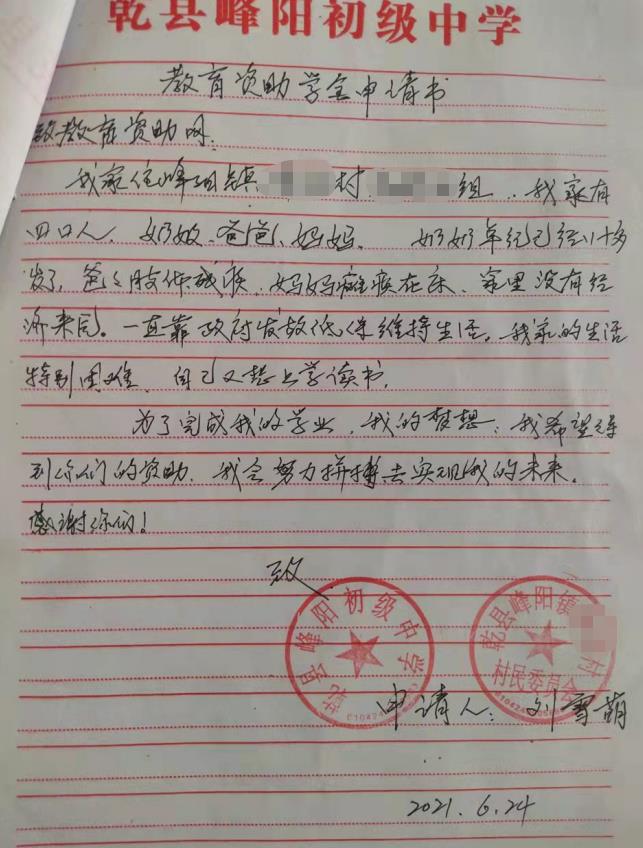 乾县峰阳初级中学
教育资助学金申请书
致教育资助网:
我家住峰阳镇 村 组,我家有
四口人,奶奶、爸爸、妈妈, 奶奶年纪已经八十多
岁了,爸爸肢体残疾,妈妈瘫痪在床,家里没有经
济来回。一直靠政府发放低保维持生活。我家的生活
特别困难,自己又想上学读书。
为了完成我的学业,我的梦想,我希望得
到你们的资助,我会努力拼搏去实现我的未来。
感谢你们!
致
乾县峰阳初级中学
乾县峰阳镇 村
村民委员会
申请人:刘雪萌
2021.6.24